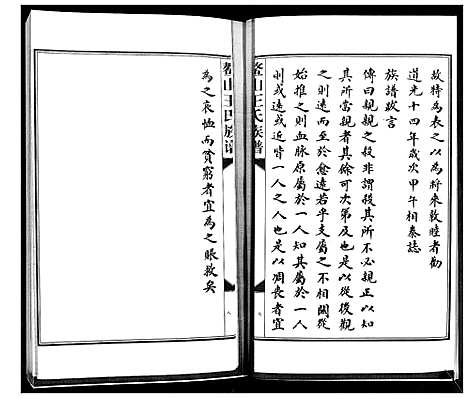 故特為表之以為將來敦睦者勸
道光十四年歲次甲午相泰誌
族譜跋言
傳曰親親之殺非謂殺其所不必親正以知
其所當親者其餘可次第及也是以從後觀
之則遠而至於愈遠若乎支屬之不相關從
始推之則血脉原屬於一人知其屬於一人
則或遠或近皆一人之人也是以凋喪者宜
鳌山王氏族譜
鳌山王氏族谱
為之哀恤而貧窮者宜為之賑救矣